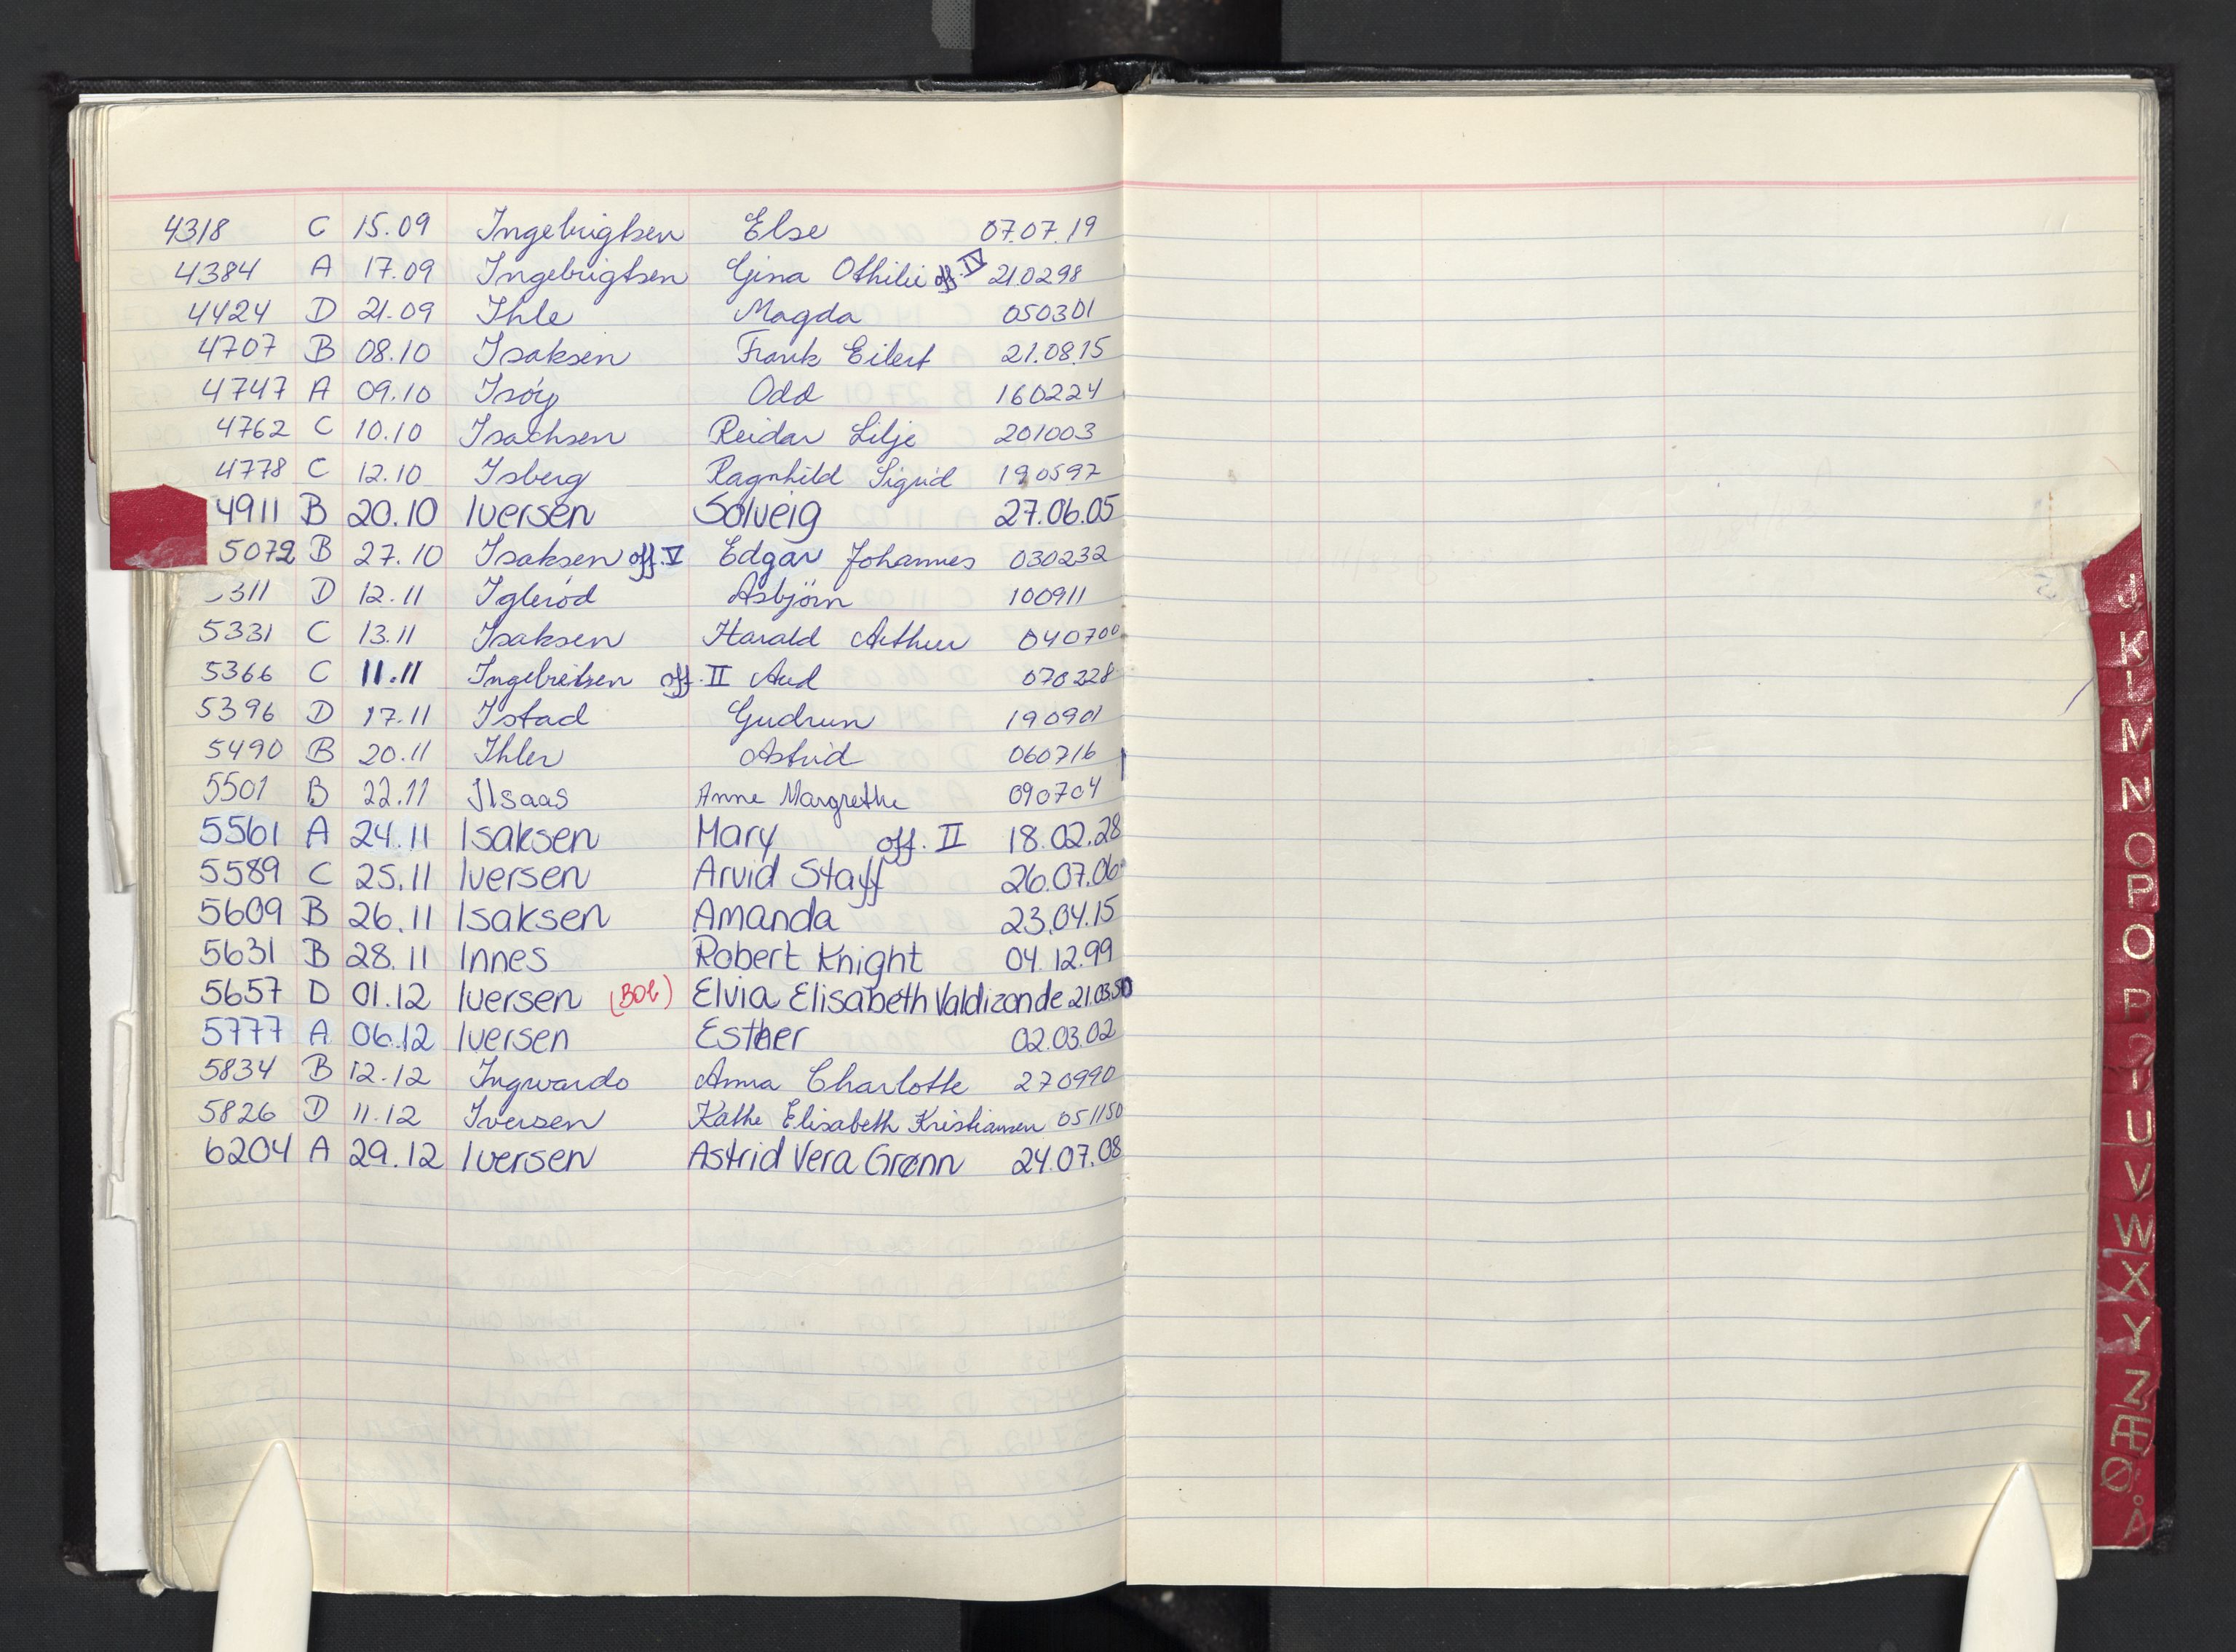 4318 C 15.09 Ingebrigtsen Else 07.07.19
4384 A 17.09 Ingebrigtsen Gina Othilie off. IV 210298
4424 D 21.09 Ihle Magda 050301
4707 B 08.10 Isaksen Frank Eilert 21.08.15
4747 A 09.10 Isöy Odd 160224
4762 C 10.10 Isachsen Reidar Lilje 201003
4778 C 12.10 Isberg Ragnhild Sigrid 190597
4911 B 20.10 Iversen Solveig 27.06.05
5072 B 27.10 Isaksen off. V Edgar Johannes 030232
311 D 12.11 Igleröd Asbjörn 100911
5331 C 13.11 Isaksen Harald Arthur 040700
5366 C 11.11 Ingebretsen off. II Aud 070228
5396 D 17.11 Istad Gudrun 190901
5490 B 20.11 Ihler Astrid 060716
5501 B 22.11 Ilsaas Anne Margrethe 090704
5561 A 24.11 Isaksen Mary off. II 18.02.28
5589 C 25.11 Iversen Arvid Staff 26.07.06
5609 B 26.11 Isaksen Amanda 23.04.15
5631 B 28.11 Innes Robert Knight 04.12.99
5657 D 01.12 Iversen Elvia Elisabeth Valdizonde 21.03.50
5777 A 06.12 Iversen Esther 02.03.02
5834 B 12.12 Ingwardo Anna Charlotte 270990
5826 D 11.12 Iversen Käthe Elisabeth Kristiansen 051150
6204 A 29.12 Iversen Astrid Vera Grønn 24.07.08
J
K
L
M
N
O
P
Q
R
U
V
W
X
Y
Z
Æ
Ø
Å